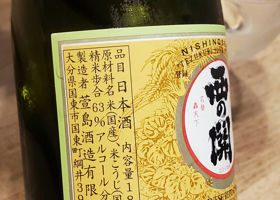 NISHINO
TEZUKURI
西の関
品目 日本酒 内容量 18
原材料名 米(国産)、米こうじ(国
精米歩合 63% アルコール分
製造者 萱島酒造有限
大分県国東市国東町綱井39